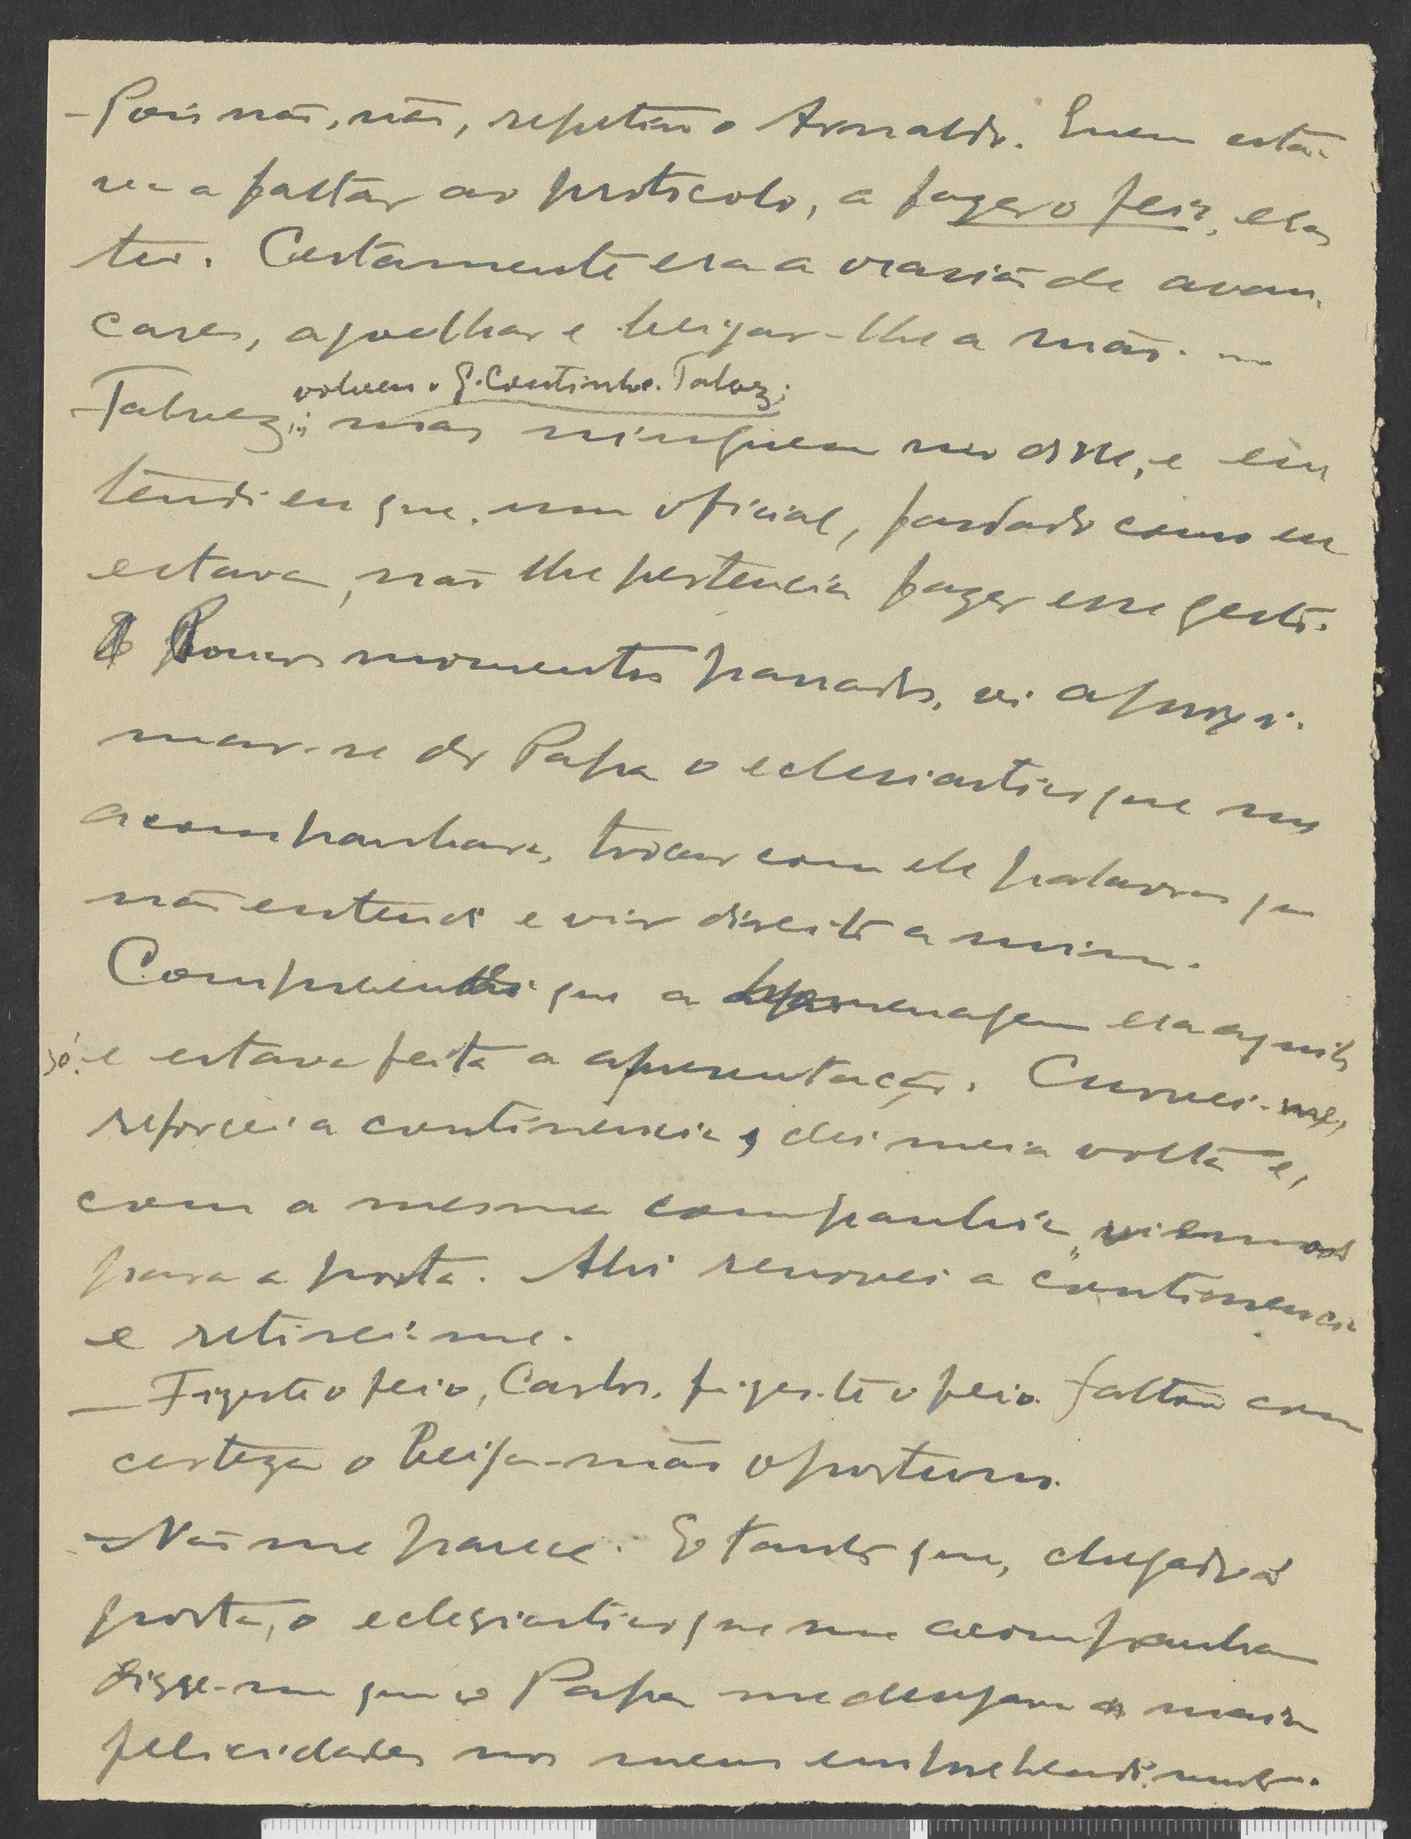 - Pois não, não, repetiu o Arnaldo. Quem esta-
va a faltar ao protocolo, a fazer o feio, eras
tu. Certamente era a ocasião de avan
cares, ajoelhar e beijar-lhe a mão.
volveu o G. Coutinho. Talvez;
- Talvez; mas ninguem mo disse, e en
tendi eu que, um oficial, fardado como eu
estava, não lhe pertencia fazer esse gesto.
Poucos momentos passados, vi aproxi-
mar-se do Papa o eclesiastico que nos
acompanhara, trocar com ele palavras que
não entendi e vir direito a mim.
Compreendi que a homenagem era aquilo
só e estava feita a apresentação. Curvei-me,
reforcei a continencia, dei meia volta e,
com a mesma companhia viemos
para a porta. Ahi renovei a continencia
e retirei-me.
- Fizeste o feio, Carlos, fizeste o feio. Faltou com
certeza o Beija-mão oportuno.
- Não me parece. E tanto que, chegado á
porta, o eclesiastico que me acompanhou
disse-me que o Papa me desejava as maiores
felicidades nos meus emprehendimentos.